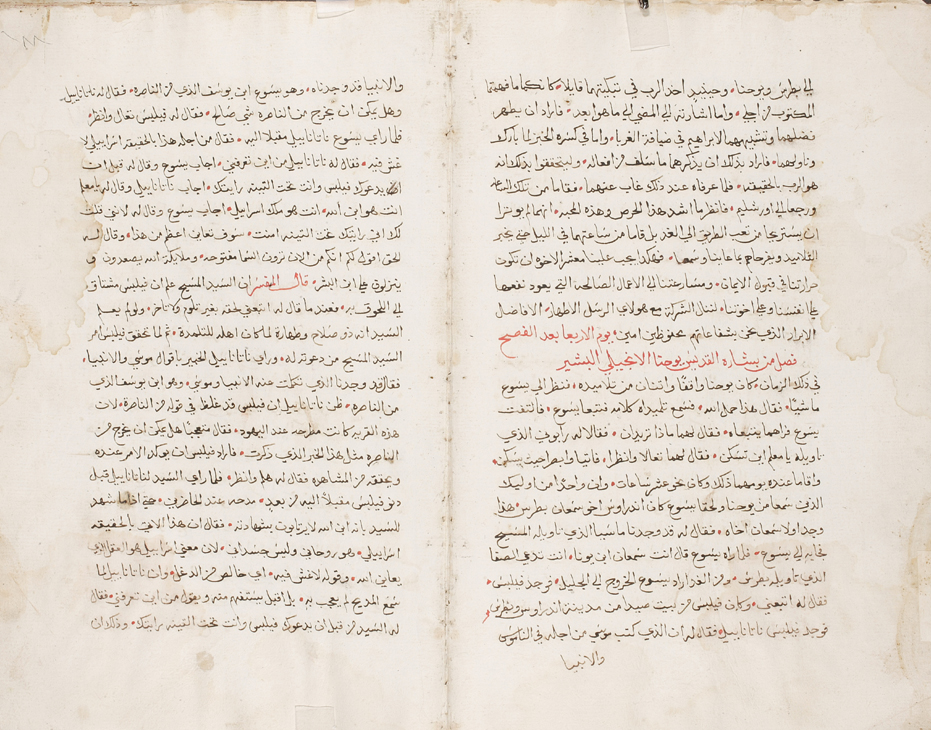 الي بطرس ويوحنا • وحينيد اخذ الرب في تبكيتهما قايلا • كانكما ما فهمتما
المكتوب من اجلي • واما اشارته الي المضي الي ما هو ابعد • فاراد ان يظهر
فضلهما وتشبههما بابراهيم في ضيافة الغربا • واما في كسره الخبز لما بارك
وناولهما • فاراد بذلك ان يذكرهما ما سلف من افعاله • وليتحققوا بذلك انه
هو الرب بالحقيقه • فلما عرفاه عند ذلك غاب عنهما • فقاما من تلك الساعه
ورجعا الي اورشليم • فانظر ما اشد هذا الحرص وهذه المحبه • انهما لم يوثرا
ان يستريحا من تعب الطريق الي الغد بل قاما من ساعتهما في الليل حتي يخبر
التلاميد ويفرحاهم بما عاينا وسمعا • فهكذا يجب علينا معشر الاخوه ان تكون
حرارتنا في قبول الايمان • ومسارعتنا الي الاعمال الصالحه التي يعود نفعها
علي انفسنا وعلي اخوتنا • لننال الشركه مع هولاي الرسل الاطهار • الافاضل
الابرار الذي نحن بشفاعاتهم محفوظين امين • يوم الاربعا بعد الفصح
فصل من بشاره القديس يوحنا الانجيلي البشير
في ذلك الزمان • كان يوحنا واقفا واثنان من تلاميذه • فنظر الي يسوع
ماشيا • فقال هذا حمل الله • فسمع تلميداه كلامه فتبعا يسوع • فالتفت
يسوع فراهما يتبعاه • فقال لهما ماذا تريدان • فقالا له رابوني الذي
تاويله يا معلم اين تسكن • فقال لهما تعالا وانظرا • فاتيا وابصرا حيث يسكن •
واقاما عنده يومهما ذلك وكان نحو عشر ساعات • وان واحدا من اوليك
الذين سمعا من يوحنا ولحقا يسوع كان اندراوس اخو سمعان بطرس • هذا
وجد اولا سمعان اخاه • فقال له قد وجدنا ماسيا الذي تاويله المسيح
فجا به الي يسوع • فلما راه يسوع قال انت سمعان ابن يونا • انت تدعي الصفا
الذي تاويله بطرس • ومن الغد اراد يسوع الخروج الي الجليل • فوجد فيلبس •
فقال له اتبعني • وكان فيلبس من بيت صيدا من مدينة اندراوس وبطرس •
فوجد فيلبس ناتاناييل • فقال له ان الذي كتب موسي من اجله في الناموس
والانبيا
والانبيا قد وجدناه • وهو يسوع ابن يوسف الذي من الناصره • فقال له ناتاناييل
وهل يمكن ان يخرج من الناصره شي صالح • فقال له فيلبس تعال وانظر •
فلما راي يسوع ناتاناييل مقبلا اليه • فقال من اجله هذا بالحقيقه اسراييلي لا
غش فيه • فقال له ناتاناييل من اين تعرفني • اجاب يسوع وقال له قبل ان
يدعوك فيلبس وانت تحت التينه رايتك • اجاب ناتاناييل وقال له يا معلم
انت هو ابن الله • انت هو ملك اسراييل • اجاب يسوع وقال له لاني قلت
لك اني رايتك تحت التينه امنت • سوف تعاين اعظم من هذا • وقال له
الحق اقول لكم انكم من الان ترون السما مفتوحه • وملايكة الله يصعدون و
ينزلون علي ابن البشر • قال المفسر ان السيد المسيح علم ان فيلبس مشتاق
الي اللحوق به • فعند ما قال له اتبعني لحقه بغير تلوم ولا تاخر • ولو لم يعلم
السيد انه ذو صلاح وطهارة لما كان اهله للتلمدة • ثم لما تحقق فيلبس امر
السيد المسيح من دعوته له • وراي ناتاناييل الخبير باقوال موسي والانبيا •
فقال قد وجدنا الذي تكلمت عنه الانبيا وموسي • وهو ابن يوسف الذي
من الناصره • ظن ناتاناييل ان فيلبس قد غلط في قوله من الناصرة • لان
هذه القريه كانت مطرحه عند اليهود • فقال متعجبا هل يمكن ان يخرج من
الناصره مثل هذا الخبر الذي ذكرت • فاراد فيلبس ان يوكد الامر عنده
ويحققه من المشاهده فقال له هلم وانظر • فلما راي السيد لناتاناييل قبل
دنو فيلبس مقبلا اليه من بعيد • مدحه عند الحاضرين • حتي اذا ما شهد
للسيد بانه ابن الله لا يرتابون بشهادته • فقال ان هذا الاتي بالحقيقه
اسراييلي • وهو روحاني وليس جسداني • لان معني اسراييل هو العقل الذي
يعاين الله • وقوله لا غش فيه • اي خالص من الدغل • وان ناتاناييل لما
سمع المديح لم يعجب به • بل اقبل يستفهم منه ويقول من اين تعرفني • فقال
له السيد من قبل ان يدعوك فيلبس وانت تحت التينه رايتك • وذلك ان